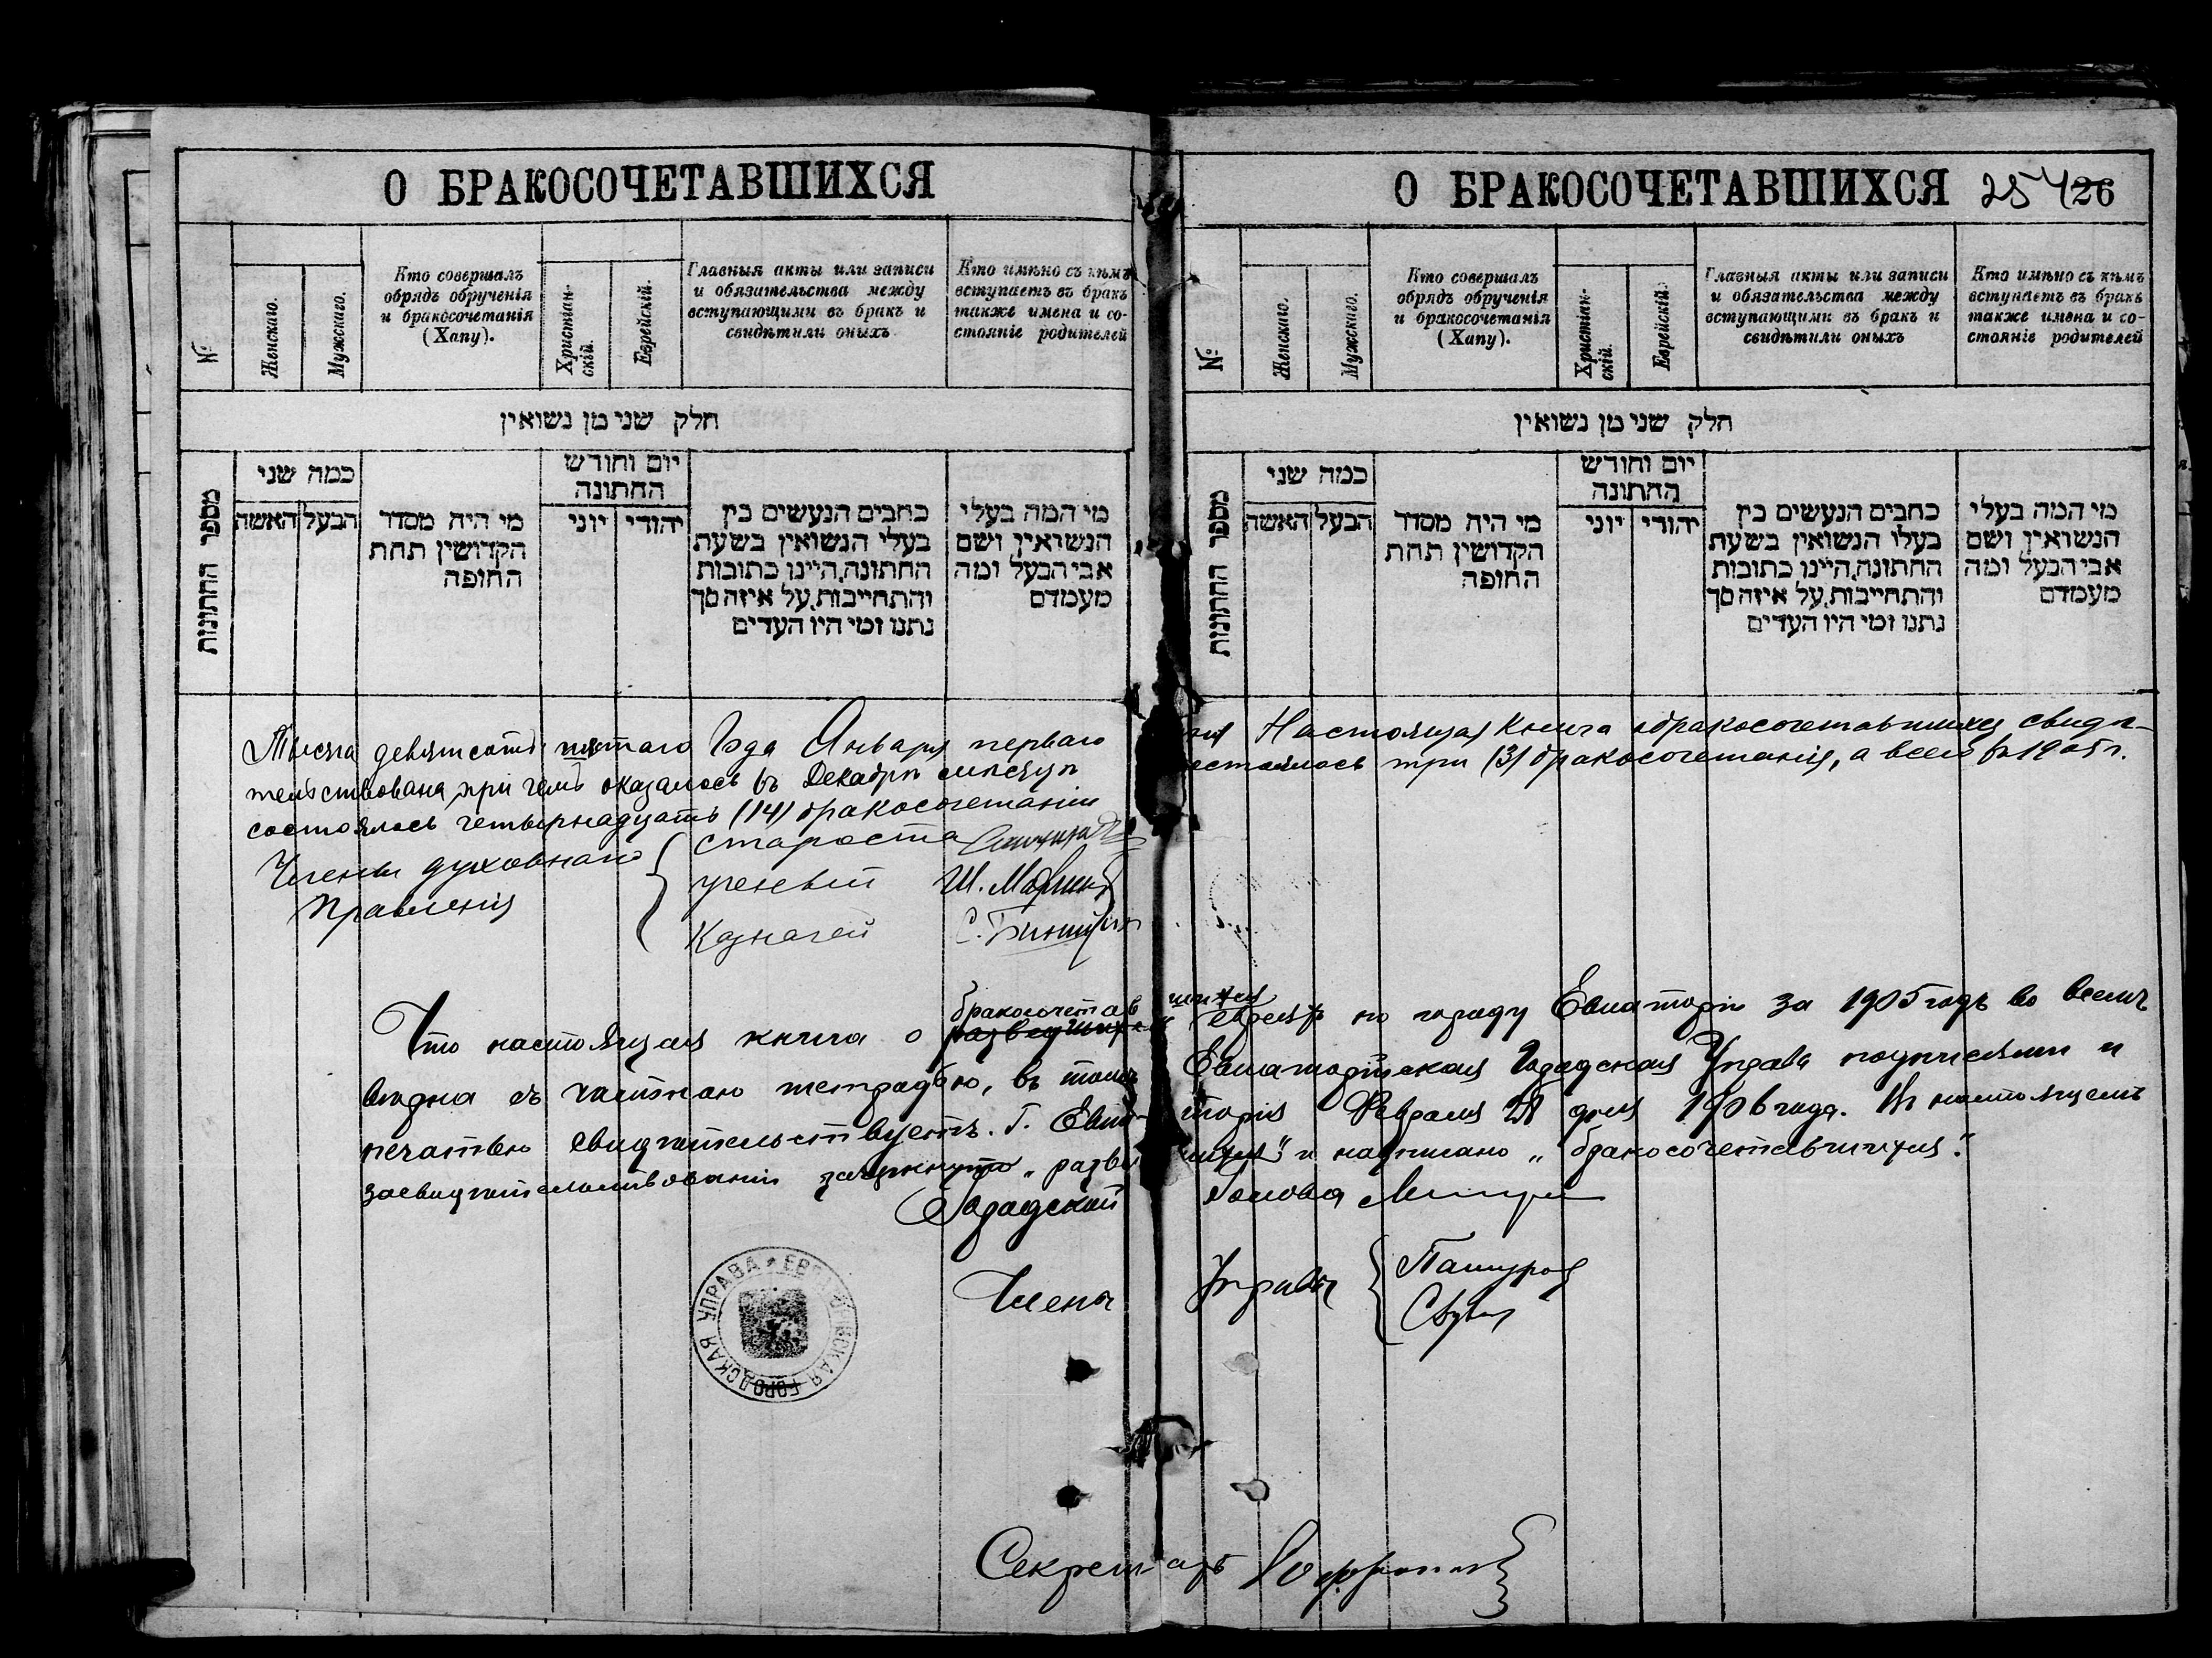 О БРАКОСОЧЕТАВШИХСЯ
№
Женскаго.
Мужскаго.
Кто совершалъ
обрядъ обрученія
и бракосочетанія
(Хапу).
Христіан-
скій.
Еврейскій.
Главныя акты или записи
и обязательства между
вступающими въ бракъ и
свидѣтили оныхъ
Кто имѣно съ кѣмъ
вступаетъ въ бракъ
также имена и со-
стояніе родителей
חלק שני מן נשואין
מספר החתונות
כמה שני
האשה
הבעל
מי היה מסדר
הקדושין תחת
החופה
יום וחודש
החתונה
יוני
יהודי
כתבים הנעשים בין
בעלי הנשואין בשעת
החתונה, היינו כתובות
והתחייבות, על איזה סך
נתנו ומי היו העדים
מי המה בעלי
הנשואין, ושם
אבי הבעל ומה
מעמדם
Тысяча девятсотъ пятаго Года Января перваго
тельствована, при чемъ оказалось въ Декабрѣ мѣсяцѣ
состоялось четырнадцать (14) бракосочетаніи
Члены духовнаго
Правленія
староста
ученый Ш.
Казначей С.
бракосочетав
Что настоящая книга о
вѣрна съ частною тетрадью, въ томъ
печатью свидѣтельствуетъ. Г. Евпа-
засвидѣтельствованіи зачеркнуто „разве
Городской
УПРАВА ГОРОДСКАЯ
Члены
Секрет
О БРАКОСОЧЕТАВШИХСЯ 25 26
№
Женскаго.
Мужскаго.
Кто совершалъ
обрядъ обрученія
и бракосочетанія
(Хапу).
Христіан-
скій.
Еврейскій.
Главныя акты или записи
и обязательства между
вступающими въ бракъ и
свидѣтили оныхъ
Кто имѣно съ кѣмъ
вступаетъ въ бракъ
также имена и со-
стояніе родителей
חלק שני מן נשואין
מספר החתונות
כמה שני
האשה
הבעל
מי היה מסדר
הקדושין תחת
החופה
יום וחודש
החתונה
יוני
יהודי
כתבים הנעשים בין
בעלי הנשואין בשעת
החתונה, היינו כתובות
והתחייבות, על איזה סך
נתנו ומי היו העדים
מי המה בעלי
הנשואין, ושם
אבי הבעל ומה
מעמדם
Настоящая Книга обракосочетавшихся свидѣ-
состоялось три (3) бракосочетанія, а всего въ 1905 г.
шихся
евреяхъ по городу Евпаторіи за 1905 годъ во всемъ
Евпаторійская Городская Управа подписями и
торія Февраля дня 1906 года. Въ настоящемъ
шихся" и надписано „бракосочетавшихся".
Голова
Управы
арь